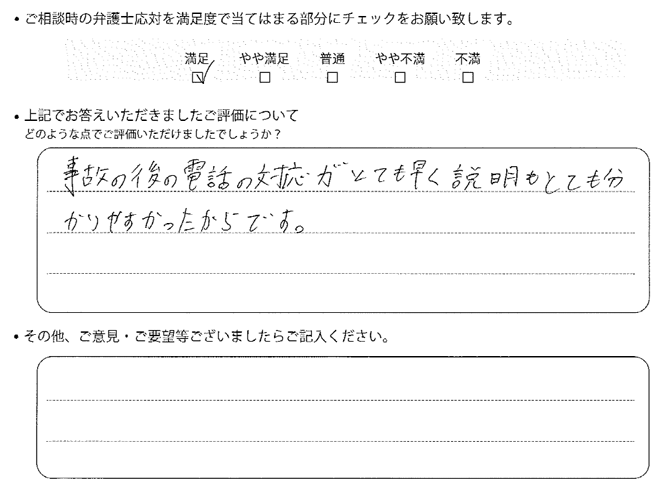 • ご相談時の弁護士応対を満足度で当てはまる部分にチェックをお願い致します。
満足 やや満足 普通 やや不満 不満
☑ □ □ □ □
• 上記でお答えいただきましたご評価について
どのような点でご評価いただけましたでしょうか？
事故の後の電話の対応がとても早く説明もとても分
かりやすかったからです。
• その他、ご意見・ご要望等ございましたらご記入ください。